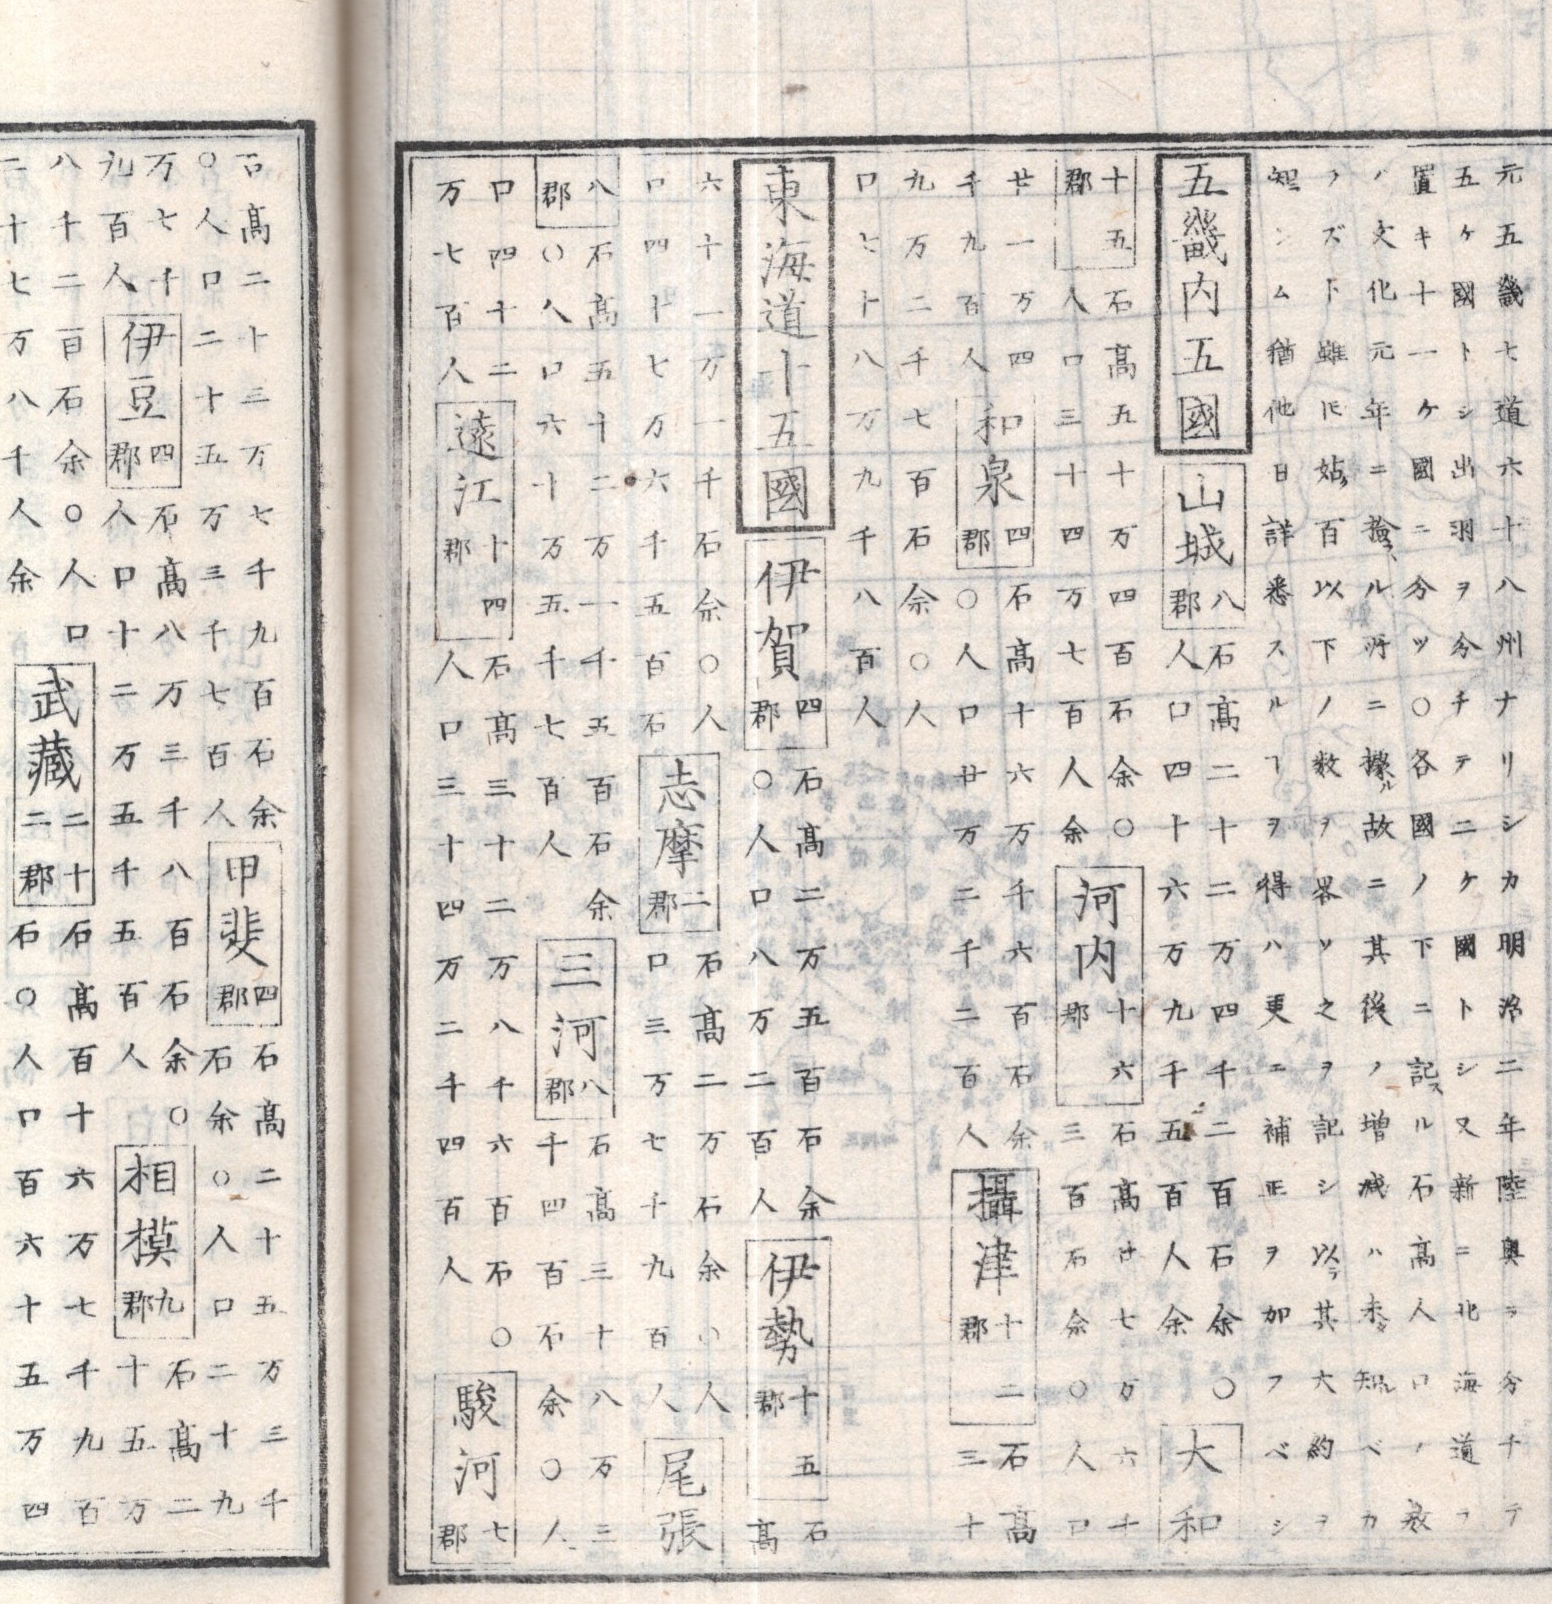 元五畿七道六十八州ナリシカ明治二年陸奥ヲ分チテ
五ケ國トシ出羽ヲ分チテ二ケ國トシ又新ニ北海道ヲ
置キ十一ケ國ニ分ツ〇各國ノ下ニ記スル石高人口ノ数
ハ文化元年ニ撿スル所ニ據ル故ニ其後ノ増減ハ未タ知ルベカ
ラズト雖𪜈姑ク百以下ノ数ヲ畧ソ之ヲ記シ以テ其大約ヲ
知ラシム猶他日詳悉スルヿヲ得ハ更ニ補正ヲ加フベシ
五畿内五國 山城 八郡 石高二十二万四千二百石余〇人口四十六万九千五百人余 大和
十五郡 石高五十万四百石余〇人口三十四万七百人余 河内 十六郡 石高廿七万六千三百石余〇人口
廿一万四千九百人 和泉 四郡 石高十六万千六百石余〇人口廿万二千二百人 攝津 十二郡 石高三十
九万二千七百石余〇人口七十八万九千八百人
東海道十五國 伊賀 四郡 石高二万五百石余〇人口八万二百人 伊勢 十五郡 石高
六十一万一千石余〇人口四十七万六千五百石 志摩 二郡 石高二万石余〇人口三万七千九百人 尾張
八郡 石高五十二万一千五百石余〇人口六十万五千七百人 三河 八郡 石高三十八万三千四百石余〇人
口四十二万七百人 遠江 十四郡 石高三十二万八千六百石〇人口三十四万二千四百人 駿河 七郡
石高二十三万七千九百石余〇人口二十五万三千七百人 甲斐 四郡 石高二十五万三千石余〇人口二十九
万七千九百人 伊豆 四郡 石高八万三千八百石余〇人口十二万五千五百人 相模 九郡 石高二十五万
八千二百石余〇人口二十七万八千人余 武藏 二十二郡 石高百十六万七千九百石〇人口百六十五万四